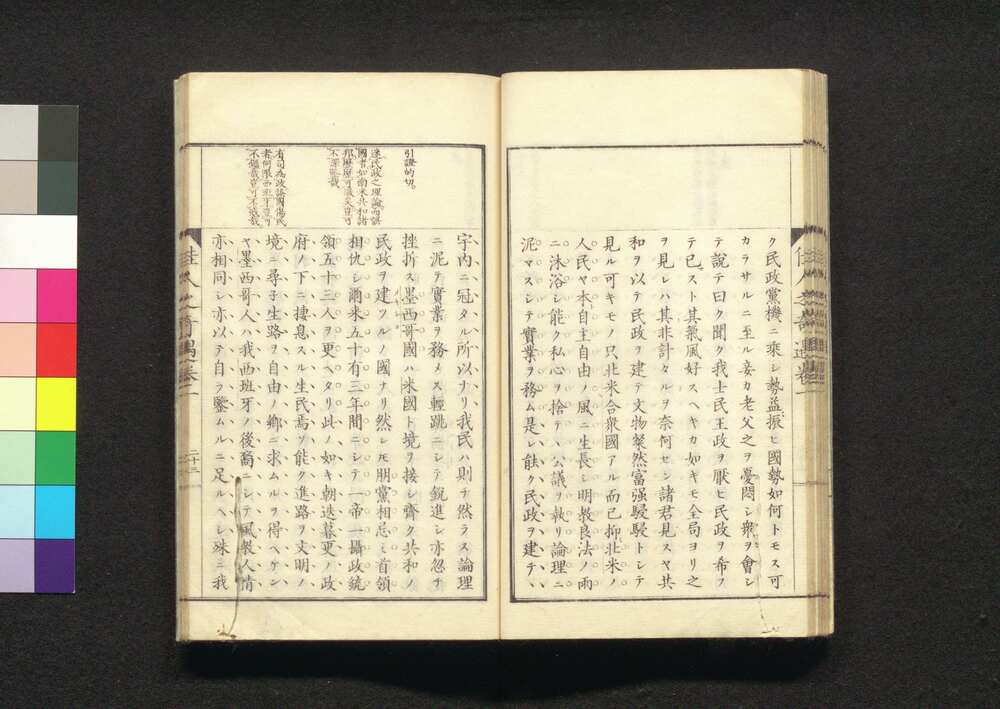 ク民政黨機ニ乘シ勢益振ヒ國勢如何トモス可
カラサルニ至ル妾カ老父之ヲ憂悶シ衆ヲ會シ
テ說テ曰ク聞ク我士民王政ヲ厭ヒ民政ヲ希フ
テ已ストス其氣風好スヘキカ如キモ全局ヨリ之
ヲ見レハ其非計タルヲ奈何セン諸君見スヤ共
和ヲ以テ民政ヲ建テ文物粲然富强駸駸トシテ
見ル可キモノ只北米合衆國アル而已抑北米ノ
人民ヤ本自主自由ノ風ニ生長シ明教良法ノ雨
ニ沐浴シ能ク私心ヲ捨テ、公議ヲ執リ論理ニ
泥マスシテ實業ヲ務ム是レ能ク民政ヲ建テ、
引證的切。
迷民政之理論而誤
國者如南米共和諸
邦歷歷可徵矣豈可
不深鑑哉
宇內ニ冠タル所以ナリ我民ハ則チ然ラス論理
ニ泥テ實業ヲ務メス輕跳ニシテ銳進シ亦忽チ
挫折ス墨西哥國ハ米國ト境ヲ接シ齊ク共和ノ
民政ヲ建ツルノ國ナリ然レモ朋黨相忌ミ首領
相仇シ爾來五十有三年間ニシテ一帝一攝政統
領五十三人ヲ更ヘタリ此ノ如キ朝迭暮更ノ政
有司爲政
府ノ下ニ棲息スル生民焉ソ能ク進路ヲ文明ノ
境ニ尋子生路ヲ自由ノ鄉ニ求ムルヲ得ヘケン
ヤ墨西哥人ハ我西班牙ノ後裔ニシテ風衆人情
亦相同シ亦以テ自ラ鑒ムルニ足ルヘシ殊ニ我
佳人之奇遇卷二
二十三